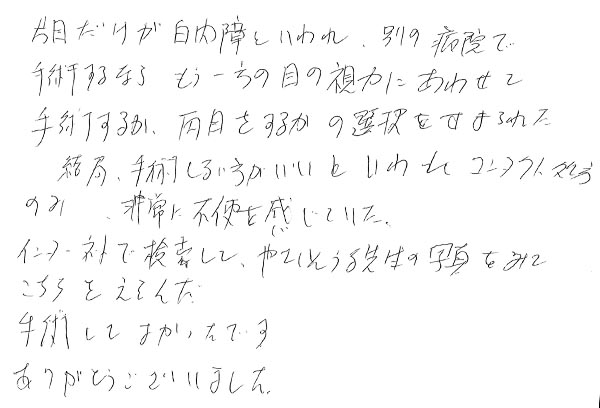 片目だけが白内障といわれ、別の病院で
手術するなら もう一方の目の視力にあわせて
手術するか、両目をするかの選択をせまられた
結局、手術しない方がいいといわれ コンタクト処方
のみ、非常に不便を感じていた。
インターネットで検索して、やさしそうな先生の写真をみて
こちらをえらんだ
手術してよかったです
ありがとうございました。